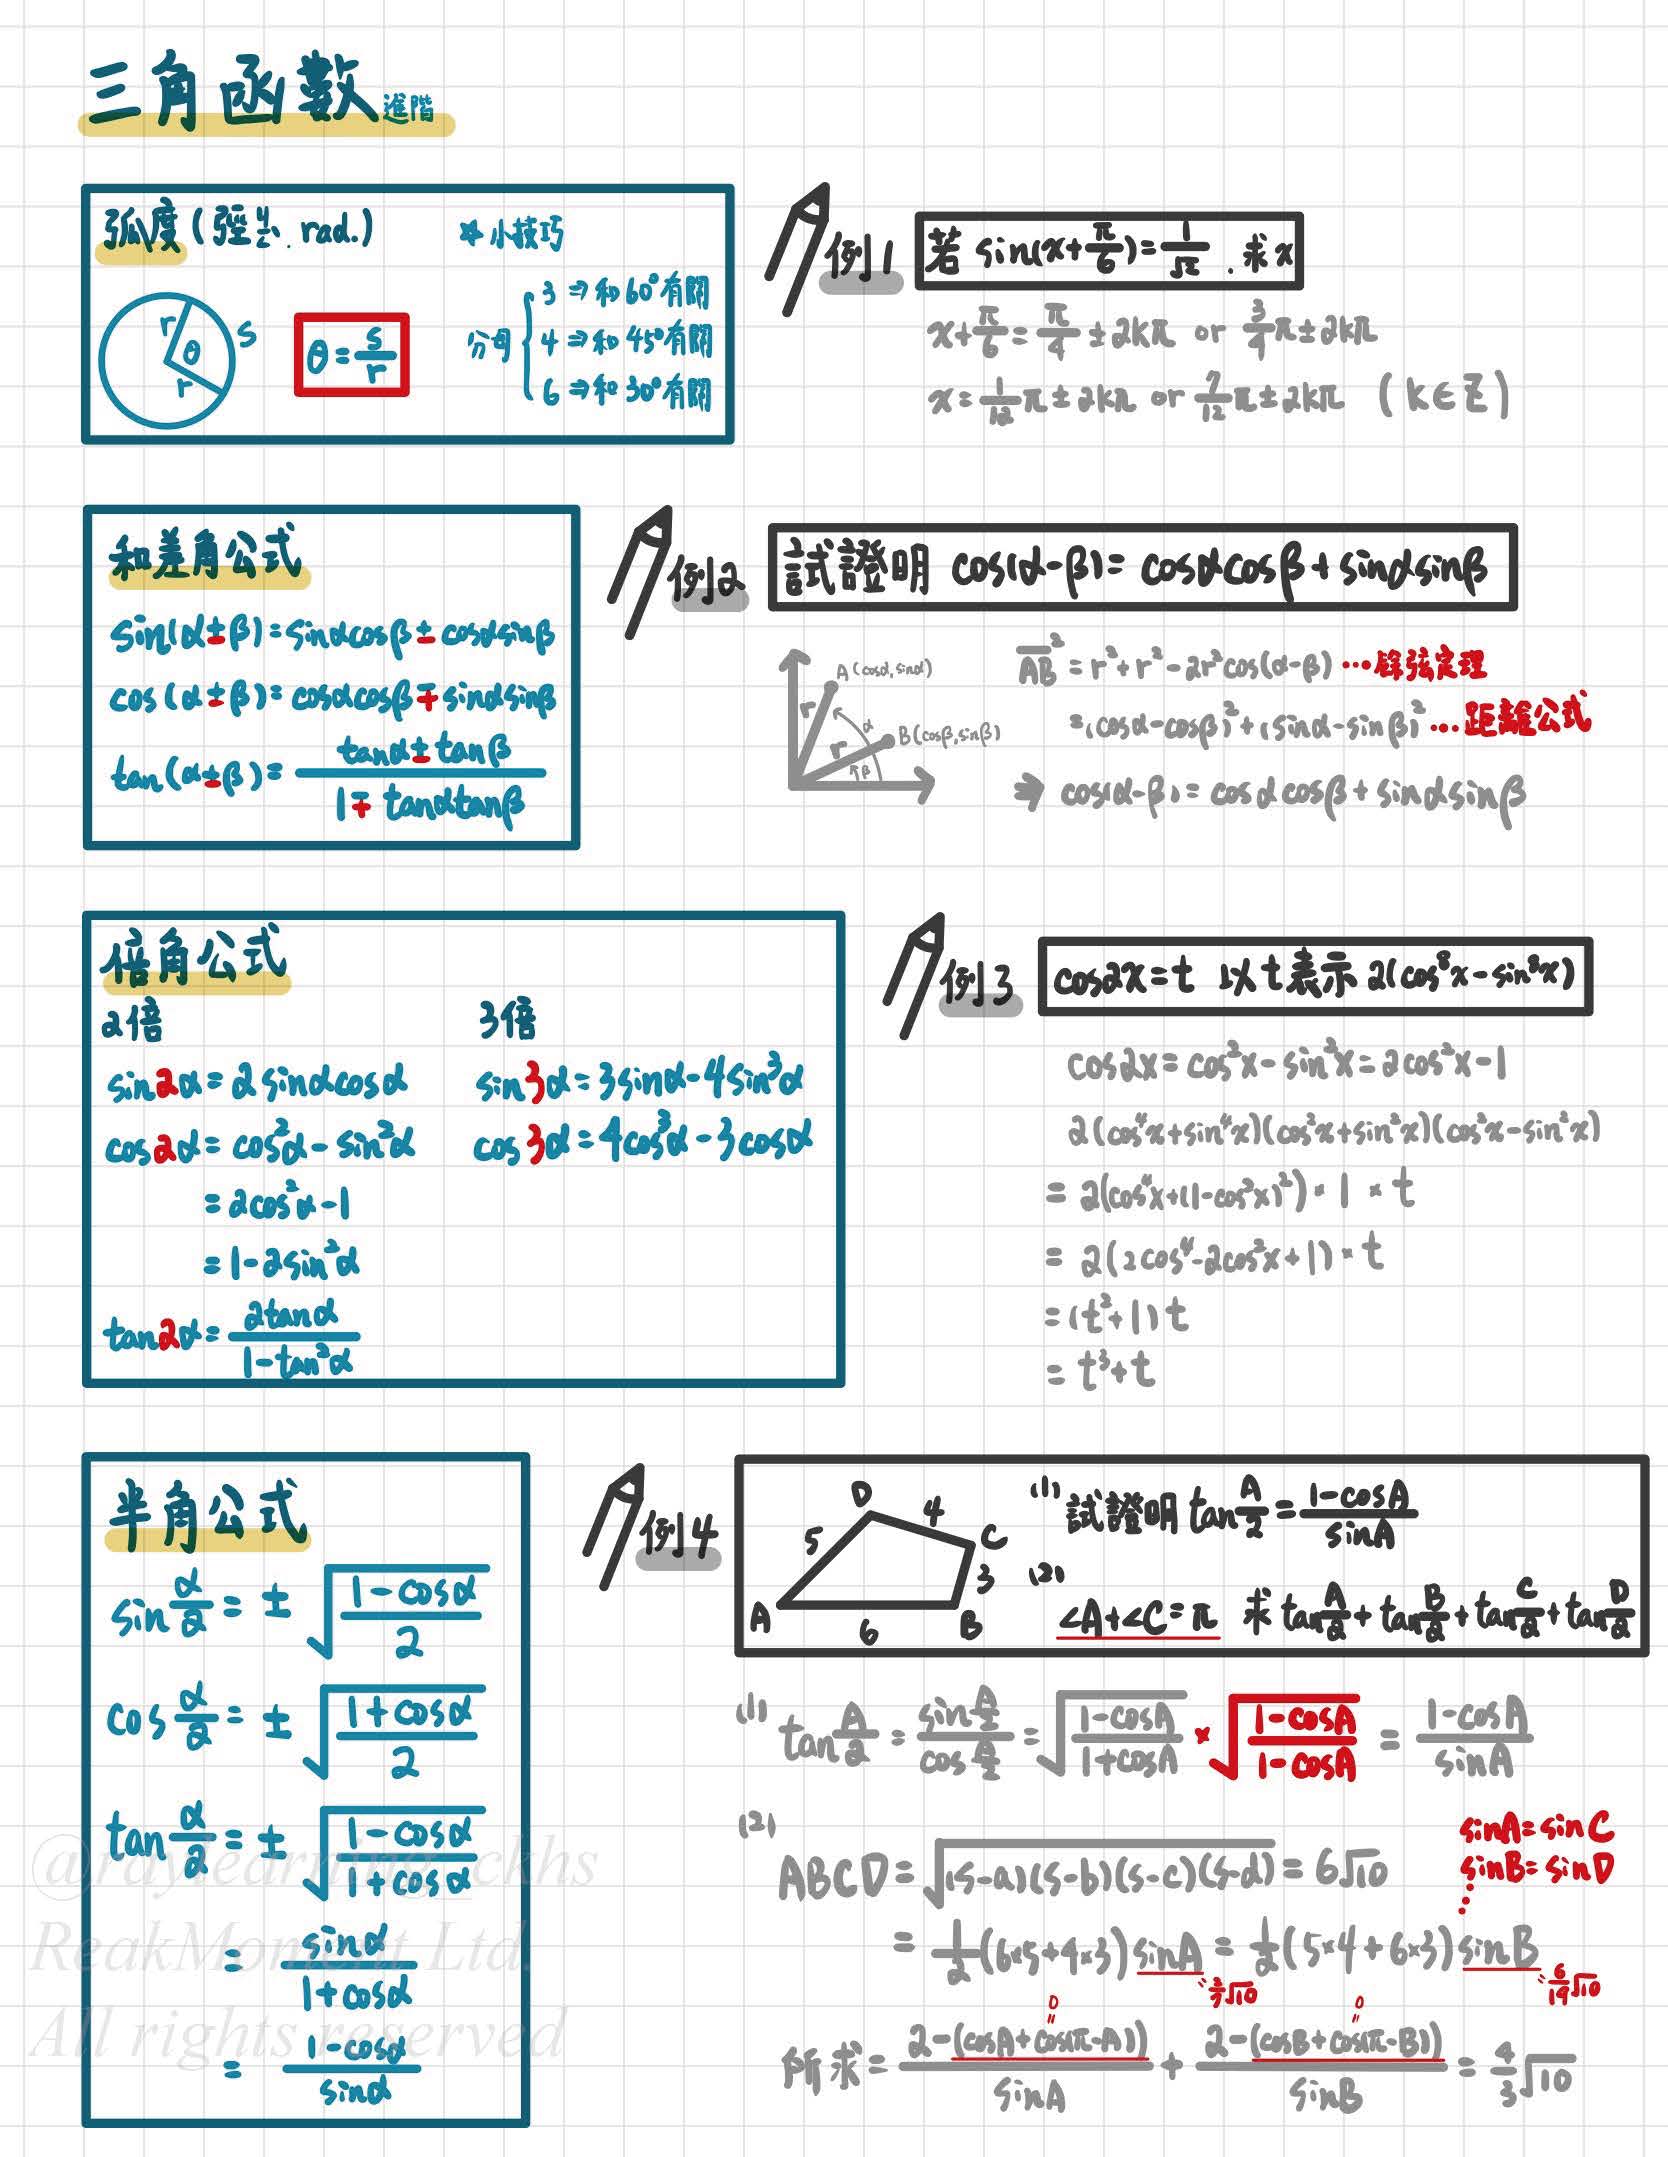 三角函數 進階
弧度(弳、rad.)
r θ r s
θ = s/r
☆小技巧
分母
3 ⇒ 和60°有關
4 ⇒ 和45°有關
6 ⇒ 和30°有關
例1
若 sin(x+π/6)=1/√2 . 求 x
x+π/6=π/4±2kπ or 3/4π±2kπ
x=1/12π±2kπ or 7/12π±2kπ (k∈Z)
和差角公式
sin(α±β)=sinαcosβ±cosαsinβ
cos(α±β)=cosαcosβ∓sinαsinβ
tan(α±β)=(tanα±tanβ)/(1∓tanαtanβ)
例2
試證明 cos(α-β)=cosαcosβ+sinαsinβ
A(cosα,sinα)
B(cosβ,sinβ)
r r α β
AB²=r²+r²-2r²cos(α-β) …餘弦定理
=(cosα-cosβ)²+(sinα-sinβ)² …距離公式
⇒ cos(α-β)=cosαcosβ+sinαsinβ
倍角公式
2倍
sin2α=2sinαcosα
cos2α=cos²α-sin²α
=2cos²α-1
=1-2sin²α
tan2α=2tanα/(1-tan²α)
3倍
sin3α=3sinα-4sin³α
cos3α=4cos³α-3cosα
例3
cos2x=t 以t表示 2(cos⁸x-sin⁸x)
cos2x=cos²x-sin²x=2cos²x-1
2(cos⁴x+sin⁴x)(cos²x+sin²x)(cos²x-sin²x)
=2(cos⁴x+(1-cos²x)²)×1×t
=2(2cos⁴-2cos²x+1)×t
=(t²+1)t
=t³+t
半角公式
sin α/2=±√((1-cosα)/2)
cos α/2=±√((1+cosα)/2)
tan α/2=±√((1-cosα)/(1+cosα))
=sinα/(1+cosα)
=(1-cosα)/sinα
例4
D 4 C
5 3
A 6 B
(1) 試證明 tan A/2=(1-cosA)/sinA
(2) ∠A+∠C=π 求 tan A/2+tan B/2+tan C/2+tan D/2
(1) tan A/2=(sin A/2)/(cos A/2)=√((1-cosA)/(1+cosA))×√((1-cosA)/(1-cosA))=(1-cosA)/sinA
(2)
ABCD=√((s-a)(s-b)(s-c)(s-d))=6√10
sinA=sinC
sinB=sinD
=1/2(6×5+4×3)sinA=1/2(5×4+6×3)sinB
2/7√10
6/19√10
0 0
所求=(2-(cosA+cos(π-A)))/sinA+(2-(cosB+cos(π-B)))/sinB=4/3√10
@raylearning_ckhs
ReakMoment Ltd.
All rights reserved